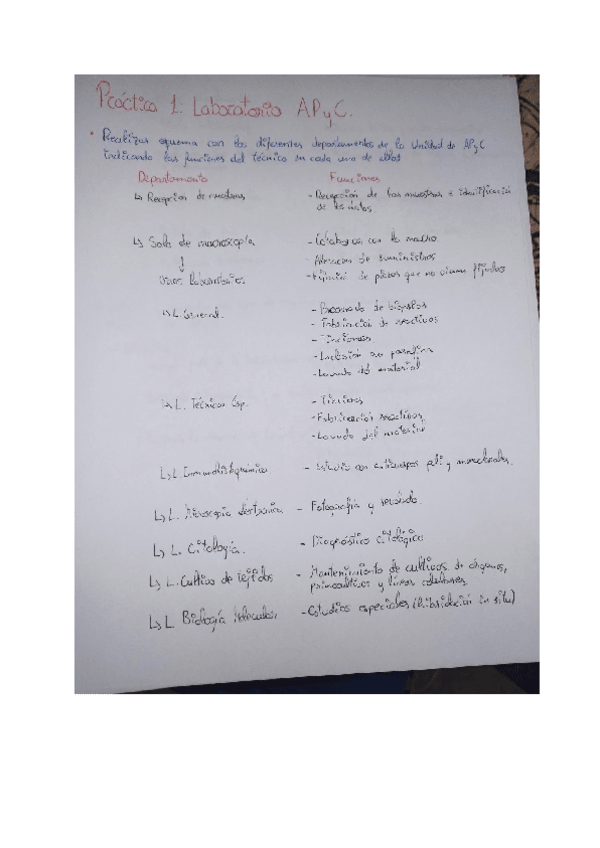 Práctica 1. Laboratorio APyC.
• Realizar esquema con los diferentes departamentos de la Unidad de APyC
indicando las funciones del técnico en cada uno de ellos
Departamento Funciones
↳ Recepción de muestras - Recepción de las muestras e identificación
de los datos
↳ Sala de macroscopía - Colaborar con la macro
↓ - Almacén de suministros
Varios laboratorios - Fijación de piezas que no vienen fijadas
↳ L. General - Procesado de biopsias
- Fabricación de reactivos
- Tinciones
- Inclusión en parafina
- Lavado del material
↳ L. Técnicas Esp. - Tinciones
- Fabricación reactivos
- Lavado del material
↳ L. Inmunohistoquímica - Estudio con anticuerpos poli y monoclonales.
↳ L. Microscopía electrónica - Fotografía y revelado.
↳ L. Citología. - Diagnóstico citológico
↳ L. Cultivo de tejidos - Mantenimiento de cultivos de órganos,
primocultivos y líneas celulares.
↳ L. Biología Molecular - Estudios especiales (hibridación in situ)